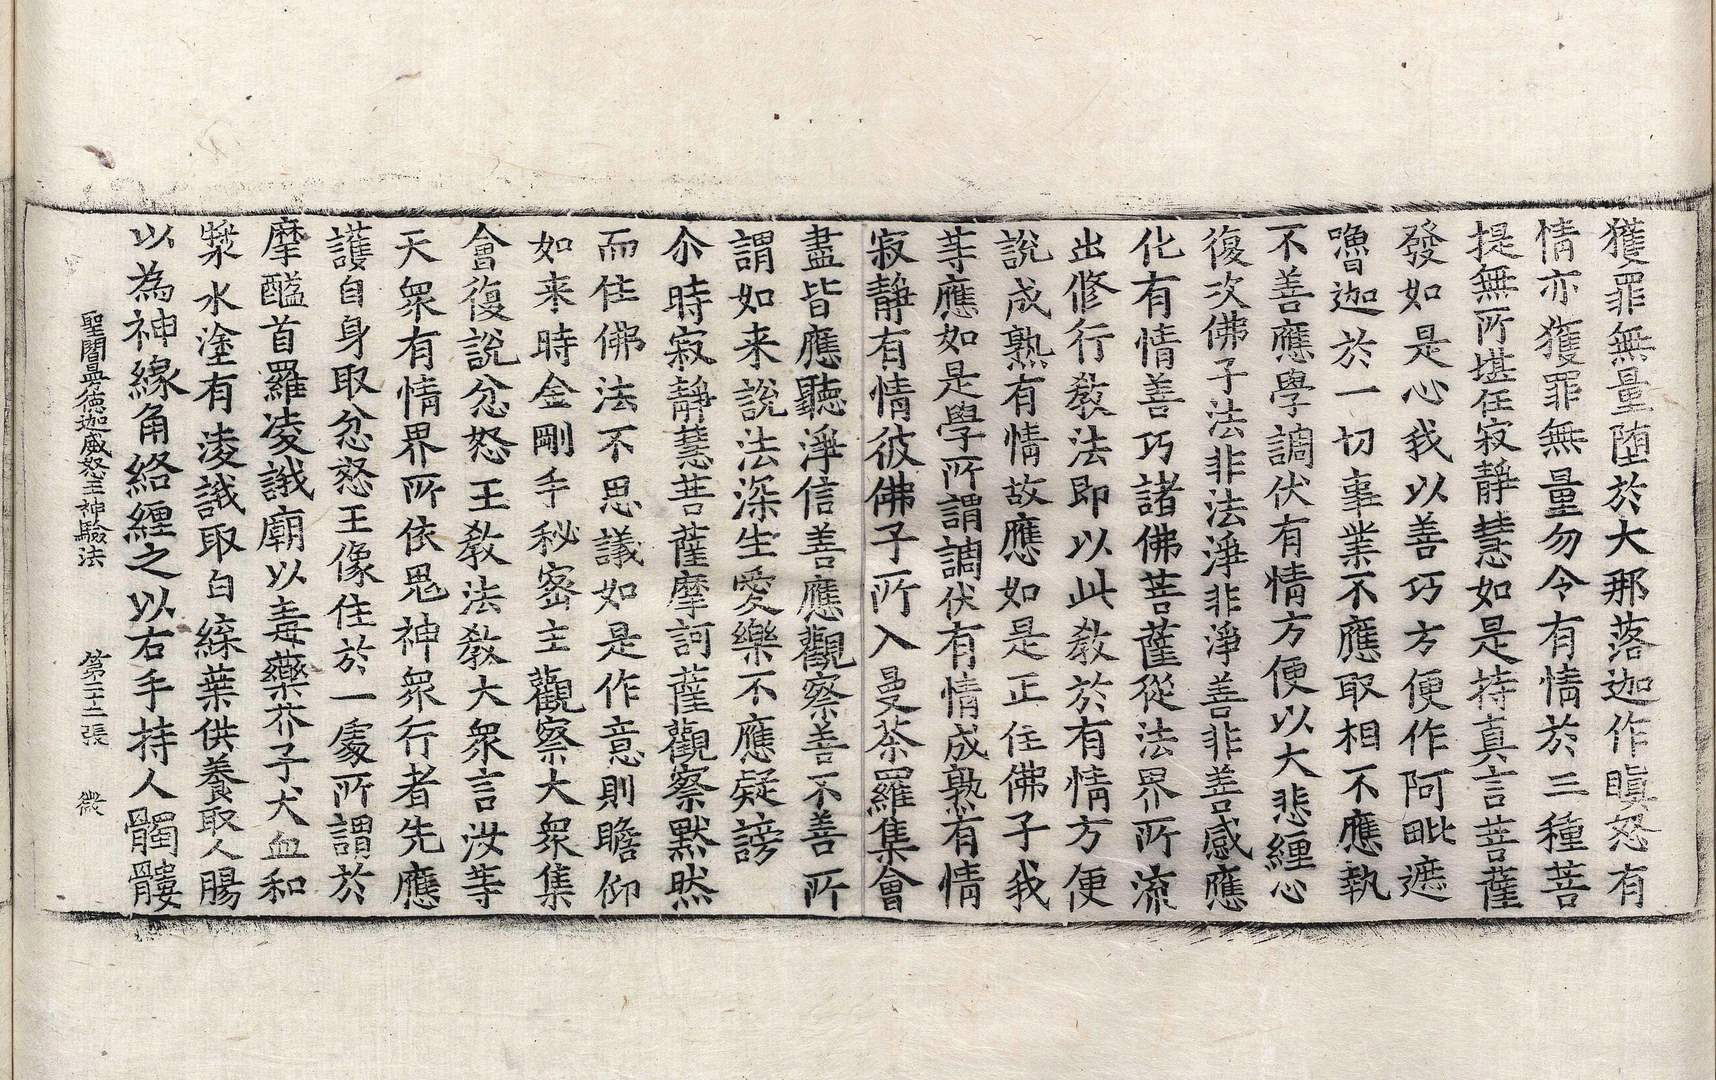 獲罪無量墮於大那落迦作瞋怒有
情亦獲罪無量勿令有情於三種菩
提無所堪任寂靜慧如是持真言菩薩
發如是心我以善巧方便作阿毗遮
嚕迦於一切事業不應取相不應執
不善應學調伏有情方便以大悲纏心
復次佛子法非法淨非淨善非善感應
化有情善巧諸佛菩薩從法界所流
出修行教法即以此教於有情方便
說成熟有情故應如是正住佛子我
等應如是學所謂調伏有情成熟有情
寂靜有情彼佛子所入曼荼羅集會
盡皆應聽淨信善應觀察善不善所
謂如来說法深生愛樂不應疑謗
尒時寂靜慧菩薩摩訶薩觀察默然
而住佛法不思議如是作意則瞻仰
如来時金剛手秘密主觀察大衆集
會復說忿怒王教法教大衆言汝等
天衆有情界所依鬼神衆行者先應
護自身取忿怒王像住於一處所謂於
摩醯首羅淩誐廟以毒藥芥子犬血和
漿水塗有淩誐取白綵葉供養取人腸
以為神緣角絡纏之以右手持人髑髏
聖閻曼德迦威怒王神驗法 第二十二張 微